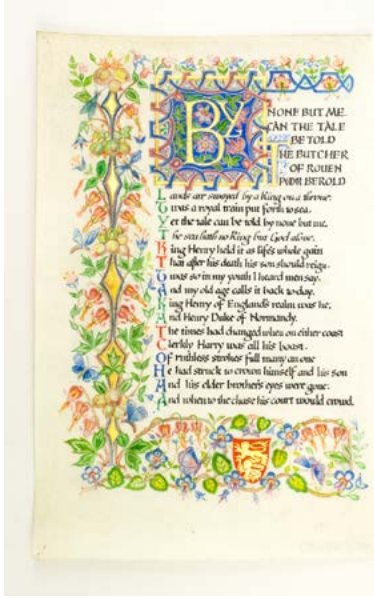 BY
NONE BUT ME
CAN THE TALE
BE TOLD
THE BUTCHER
OF ROUEN
POOR BEROLD
Lands are swayed by a King on a throne.
Twas a royal train put forth to sea.
Yet the tale can be told by none but me.
The sea hath no King but God alone.
King Henry held it as life's whole gain
That after his death his son should reign.
Twas so in my youth I heard men say.
And my old age calls it back to-day.
King Henry of England's realm was he,
And Henry Duke of Normandy.
The times had changed when on either coast
Clerkly Harry was all his boast.
Of ruthless strokes full many an one
He had struck to crown himself and his son
And his elder brother's eyes were gone.
And when to the chase his court would crowd.